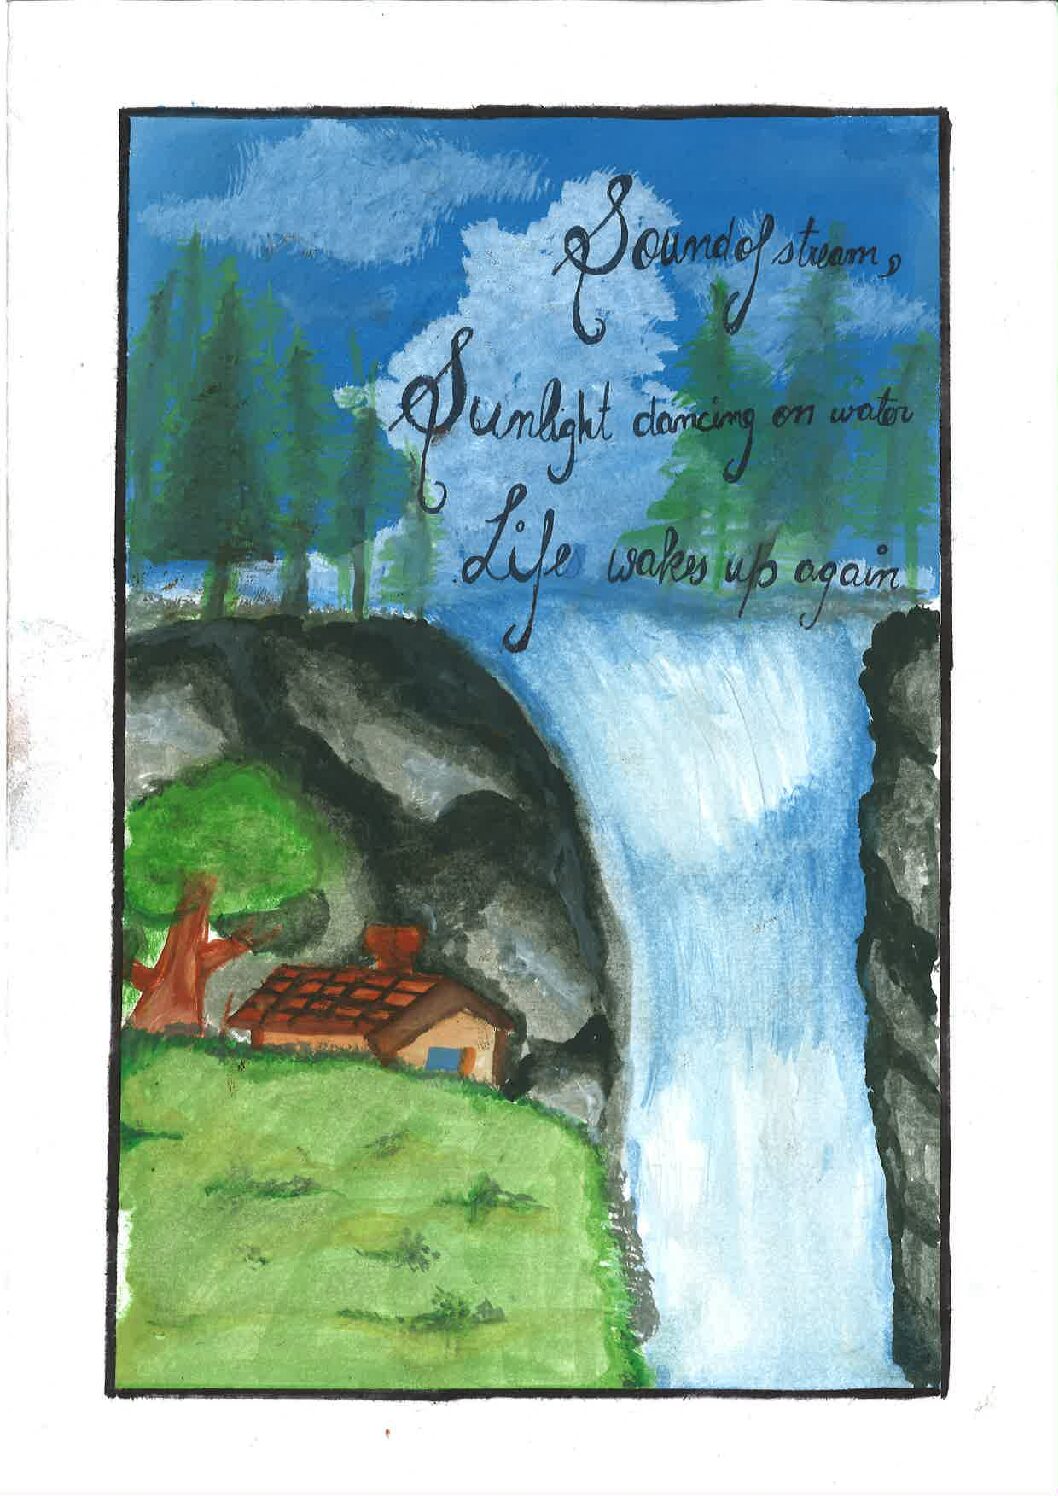 Sound of stream,
Sunlight dancing on water
Life wakes up again